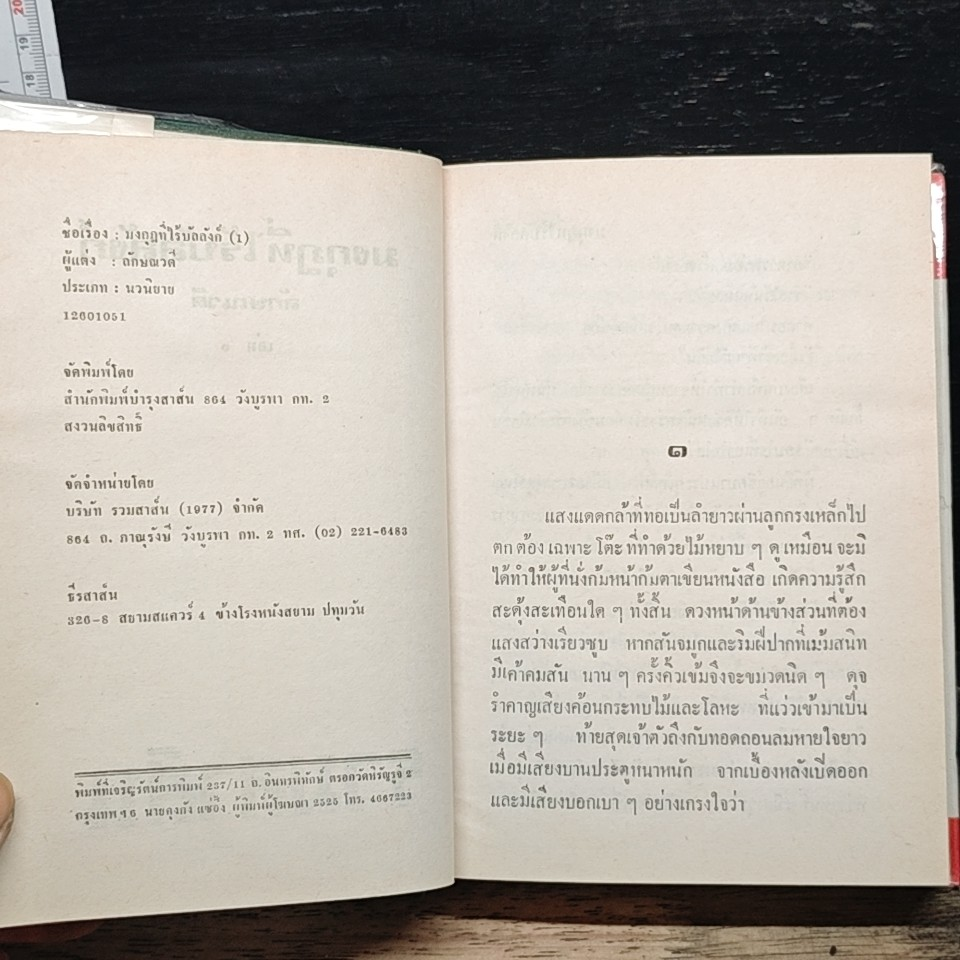 ชื่อเรื่อง : มงกุฎที่ไร้บัลลังก์ (1)
ผู้แต่ง : ลักษณวดี
ประเภท : นวนิยาย
12601051
จัดพิมพ์โดย
สำนักพิมพ์บำรุงสาส์น 864 วังบูรพา กท. 2
สงวนลิขสิทธิ์
จัดจำหน่ายโดย
บริษัท รวมสาส์น (1977) จำกัด
864 ถ. ภาณุรังษี วังบูรพา กท. 2 ทศ. (02) 221-6483
ธีรสาส์น
326-8 สยามสแควร์ 4 ข้างโรงหนังสยาม ปทุมวัน
พิมพ์ที่เจริญรัตน์การพิมพ์ 237/11 ถ. อินทรพิทักษ์ ตรอกวัดหิรัญรูจี 2
กรุงเทพฯ 16 นายคุงกัง แซ่อึ๊ง ผู้พิมพ์ผู้โฆษณา 2525 โทร. 4667223
๑
แสงแดดกล้าที่ทอเป็นลำยาวผ่านลูกกรงเหล็กไป
ตก ต้อง เฉพาะ โต๊ะ ที่ทำด้วยไม้หยาบ ๆ ดู เหมือน จะมิ
ได้ทำให้ผู้ที่นั่งก้มหน้าก้มตาเขียนหนังสือ เกิดความรู้สึก
สะดุ้งสะเทือนใด ๆ ทั้งสิ้น ดวงหน้าด้านข้างส่วนที่ต้อง
แสงสว่างเรียวซูบ หากสันจมูกและริมฝีปากที่เม้มสนิท
มีเค้าคมสัน นาน ๆ ครั้งคิ้วเข้มจึงจะขมวดนิด ๆ ดุจ
รำคาญเสียงค้อนกระทบไม้และโลหะ ที่แว่วเข้ามาเป็น
ระยะ ๆ ท้ายสุดเจ้าตัวถึงกับทอดถอนลมหายใจยาว
เมื่อมีเสียงบานประตูหนาหนัก จากเบื้องหลังเปิดออก
และมีเสียงบอกเบา ๆ อย่างเกรงใจว่า
20
19
18